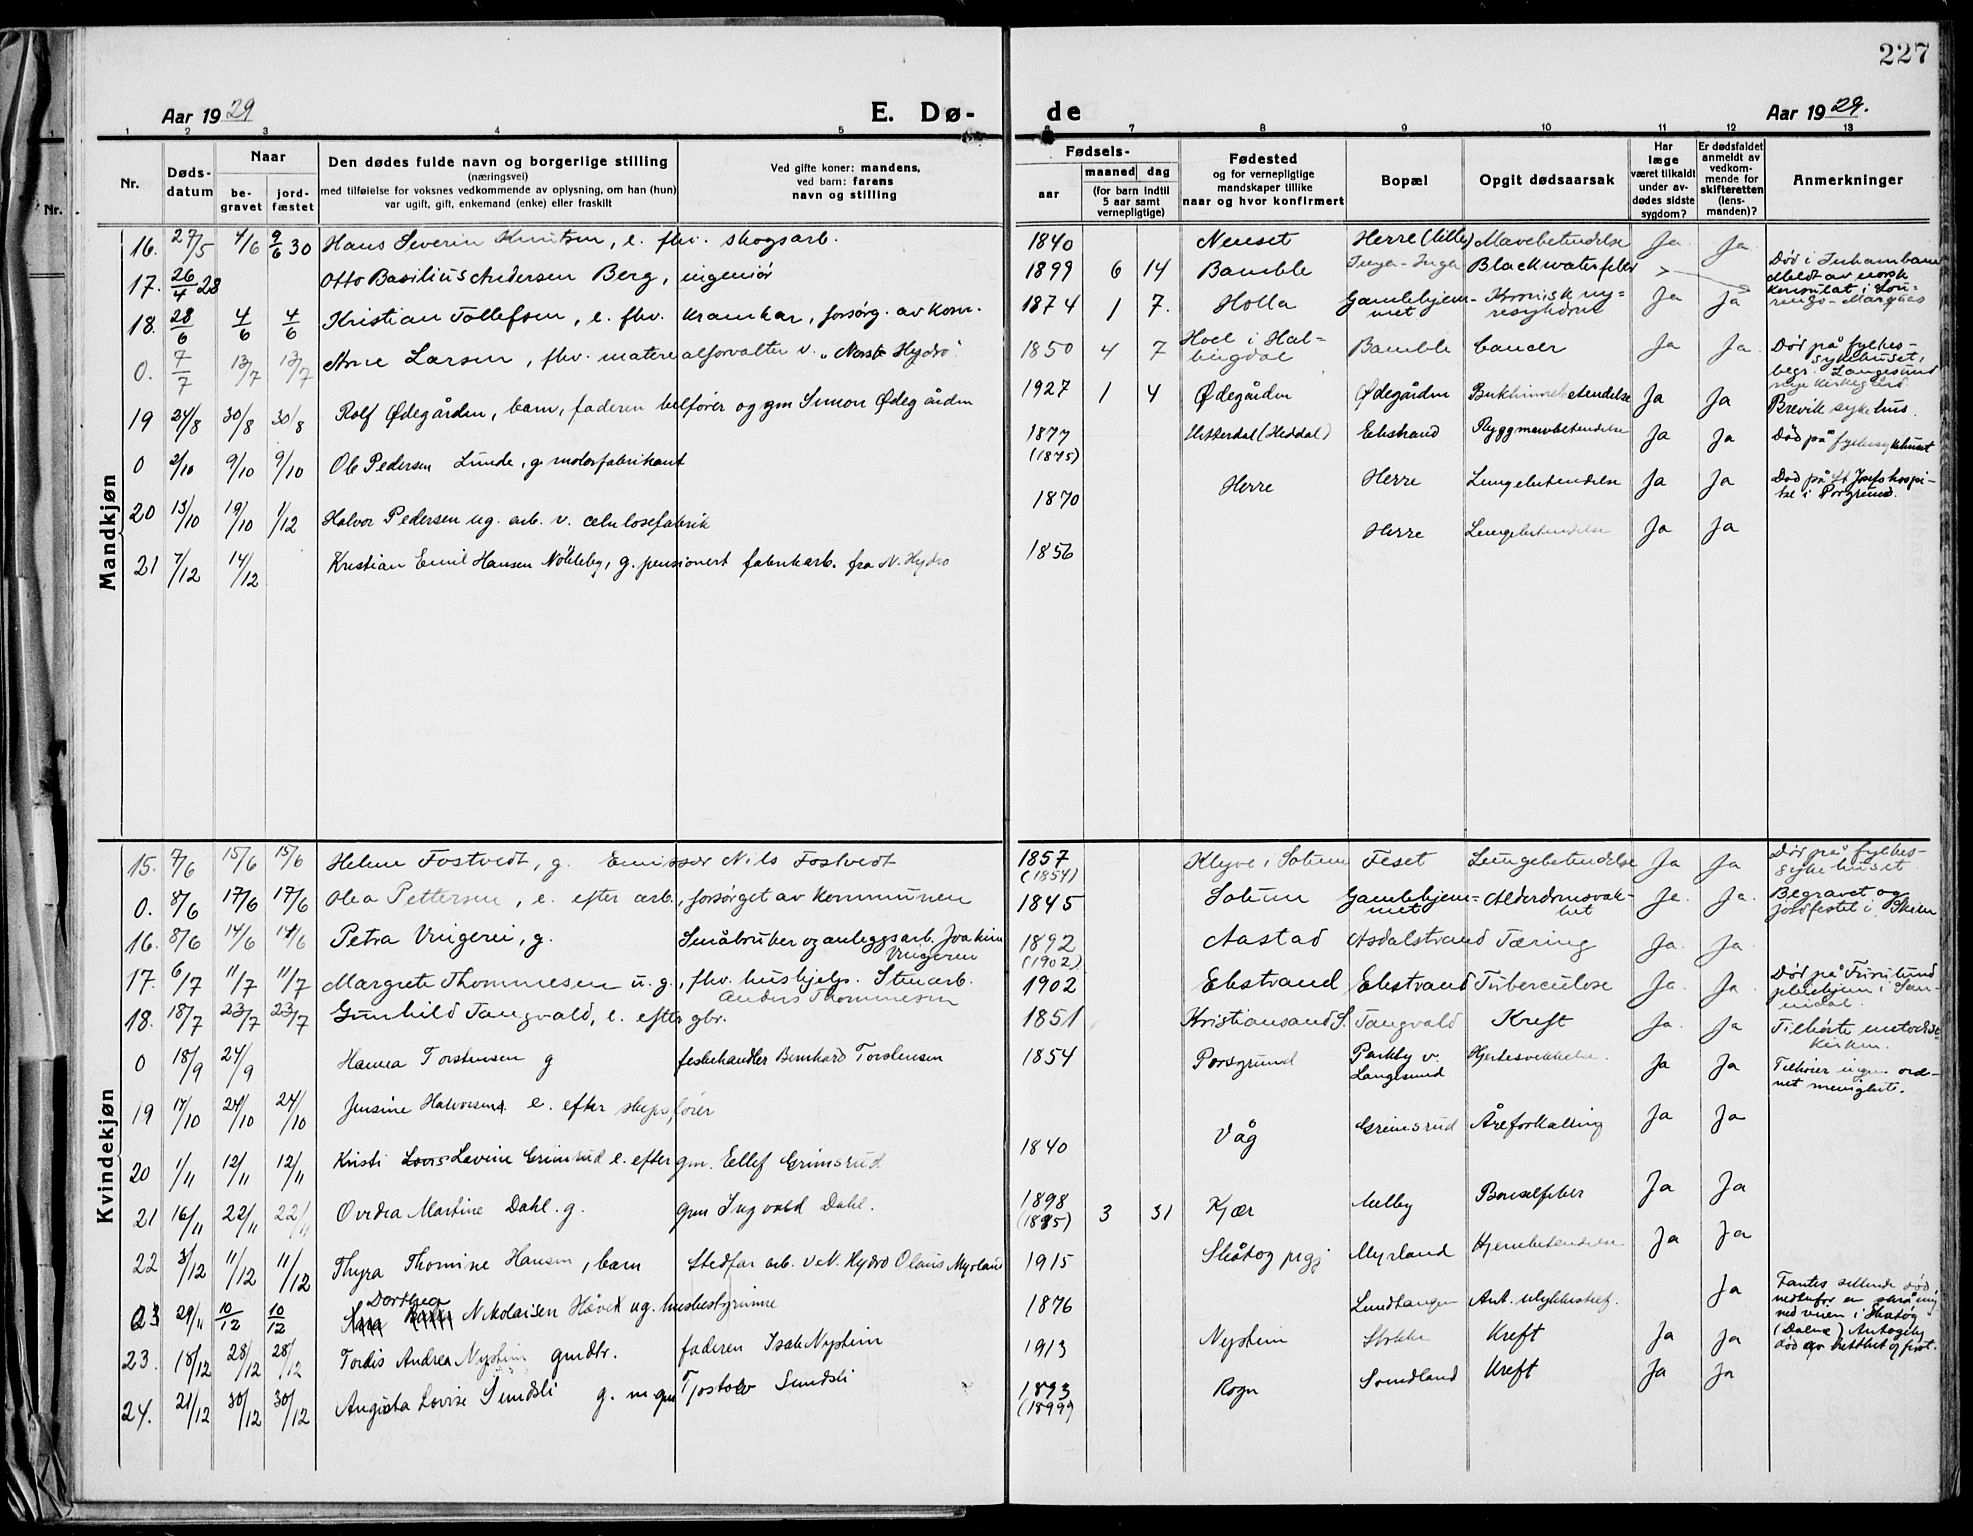 227
Aar 1929
E. Dø-
de
Aar 1929.
1 2 3 4 5 6 7 8 9 10 11 12 13
Nr.
Døds-
datum
Naar
be-
gravet
jord-
fæstet
Den dødes fulde navn og borgerlige stilling
(næringsvei)
med tilføielse for voksnes vedkommende av oplysning, om han (hun)
var ugift, gift, enkemand (enke) eller fraskilt
Ved gifte koner: mandens,
ved barn: farens
navn og stilling
Fødsels-
aar
maaned dag
(for barn indtil
5 aar samt
vernepligtige)
Fødested
og for vernepligtige
mandskaper tillike
naar og hvor konfirmert
Bopæl
Opgit dødsaarsak
Har
læge
været tilkaldt
under av-
dødes sidste
sygdom?
Er dødsfaldet
anmeldt av
vedkom-
mende for
skifteretten
(lens-
manden)?
Anmerkninger
Mandkjøn
16. 27/5 4/6 9/6 30 Hans Severin Knutsen, e. fhv. skogsarb. 1840 Nenset Herre Mavebetendelse Ja Ja
17. 26/4 28 Otto Basilius Andersen Berg, ingeniør 1899 6 14 Bamble Blackwaterfeber
Død i Inhambane
18. 28/6 4/6 4/6 Kristian Tollefsen, e. fhv. forsørg. av kom. 1874 1 7. Holla Gamlehjem-
met Kronisk ny-
resykdom Ja Ja
0. 7/7 13/7 13/7 Arne Larsen, fhv. materialforvalter v. "Norsk Hydro" 1850 4 7 Hoel i Hal-
lingdal Bamble Cancer Ja Ja
Død på fylkes-
sykehuset,
begr. Langesund
nye kirkegård
19 24/8 30/8 30/8 Rolf Ødegården, barn, faderen belfører og gm Simon Ødegården 1927 1 4 Ødegården Ødegården Bukhinnebetendelse Ja Ja Brevik sykehus.
0 2/10 9/10 9/10 Ole Pedersen Lunde, g. motorfabrikant 1877
(1875) Hitterdal (Heddal) Ekstrand Ryggmarvbetendelse Ja Ja Død på fylkessykehuset
20 13/10 19/10 1/12 Halvor Pedersen ug. arb. v. celulosefabrik 1870 Herre Herre Lungebetendelse Ja Ja Død på St Josefs hospi-
tal i Porsgrund.
21 7/12 14/12 Kristian Emil Hansen , g. pensionert fabrikarb. fra N. Hydro 1856 Herre Lungebetendelse Ja Ja
Kvindekjøn
15. 7/6 15/6 15/6 Helene Fostvedt, g. Emissær Nils Fostvedt 1857
(1854) Klyve i Solum Feset Lungebetendelse Ja Ja Død på fylkes-
sykehuset
0. 8/6 17/6 17/6 Olea Pettersen, e. efter arb., forsørget av kommunen 1845 Solum Gamlehjem-
met Alderdomsvak-
het Ja. Ja. Begravet og
jordfestet i Skien
16. 8/6 14/6 14/6 Petra Vrigerei, g. Småbruker og anleggsarb. Joakim
Vrigeren 1892
(1902) Aastad Asdalstrand Tæring Ja. Ja.
17. 6/7 11/7 11/7 Margrete Thommesen u.g., fhv. hushjelp. Stenarb.
Anders Thommesen 1902 Ekstrand Ekstrand Tuberculose Ja. Ja. Død på Furulund
pleiehjem i San-
nidal.
18. 18/7 23/7 23/7 Gunhild Tangvald, e. efter gbr. 1851 Kristiansand S. Tangvald Kreft Ja. Ja Tilhørte metodist-
kirken.
0 18/9 24/9 Hanna Torstensen g feskehandler Bernhard Torstensen 1854 Porsgrund v.
Langesund Hjertesvekkelse. Ja Ja Tilhører ingen ord-
net menighet.
19 17/10 24/10 24/10 Jensine Halvorsen. e. efter skipsfører 1840 Våg Grimsrud Åreforkalkning Ja Ja
20 1/11 12/11 12/11 Kristi Lovise Lavine Grimsrud e. efter gm. Ellef Grimsrud
21 16/11 22/11 22/11 Ovedia Martine Dahl. g. gm Ingvald Dahl. 1898
(1885) 3 31 Kjær Melby Barselfeber Ja Ja
22 3/12 11/12 11/12 Thyra Thomine Hansen, barn Stedfar arb. v. N. Hydro Olaus Myrland 1915 Skåtøy prgj Myrland Hjernebetendelse Ja Ja
Dorthea
23 29/11 10/12 10/12 Nikolaisen ug. husbestyrinne 1876 Lundtangen Ant. ulykkestilf. Ja
23. 18/12 28/12 28/12 Tordis Andrea Nystein gmdtr. faderen Isak Nystein 1913 Nystein Stokke Kreft Ja Ja
24. 21/12 30/12 30/12 Augusta Lovise Sundsli g. m gm Tjostolv Sundsli 1893
(1899) Rogn Sundland Kreft Ja Ja